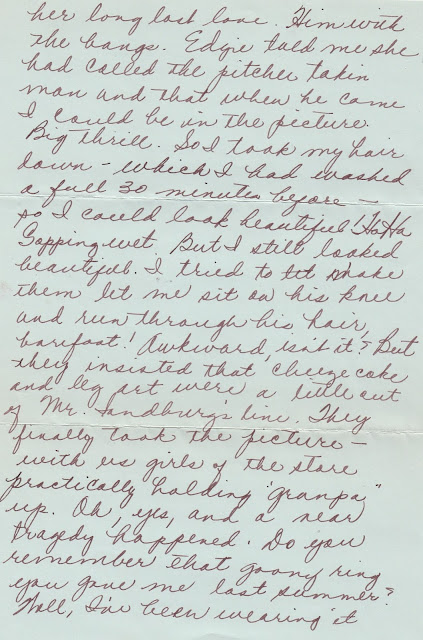 her long lost love. Him with
the bangs. Edgie told me she
had called the pitcher takin
man and that when he come
I could be in the picture.
Big thrill. So I took my hair
down - which I had washed
a full 30 minutes before -
so I could look beautiful! Ha Ha
Sopping wet. But I still looked
beautiful. I tried to make
them let me sit on his knee
and run through his hair,
barefoot! Awkward, isn't it? But
they insisted that cheeze coke
and leg art were a little out
of Mr. Sandburg's line. They
finally took the picture -
with us girls of the store
practically holding "granpa"
up. Oh, yes, and a near
tragedy happened. Do you
remember that goony ring
you gave me last summer?
Well, I've been wearing it